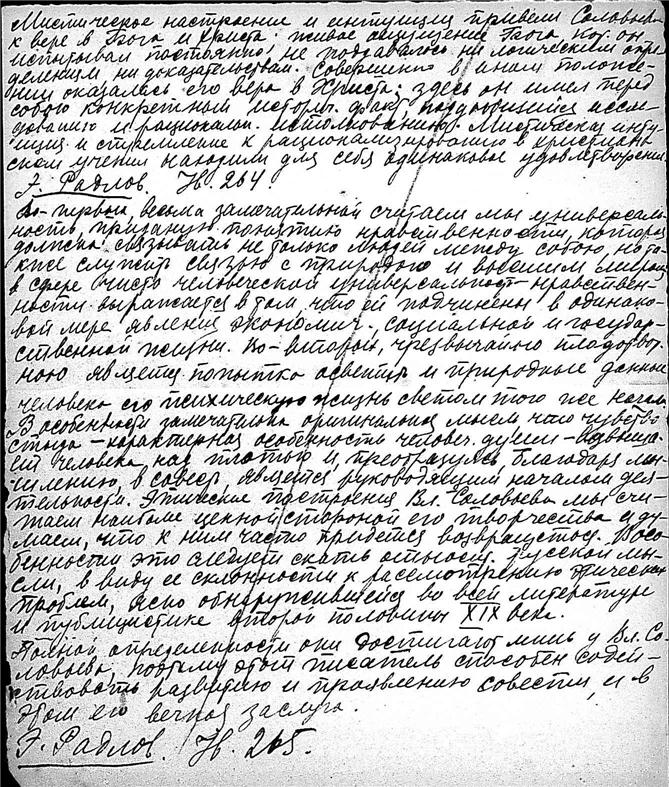 Мистическое настроение и интуиция привели Соловьева
к вере в Бога и Христа: живое ощущение Бога, кот. он
испытывал постоянно, не поддавалось ни логическим опре-
делениям ни доказательствам. Совершенно в ином положе-
нии оказалась его вера в Христа: здесь он имел перед
собою конкретный историч. факт, поддающийся иссле-
дованию и рационалн. истолкованию. Мистическая инту-
иция и стремление к рационализированию в христиан-
ском учении находили для себя одинаковое удовлетворение
Э. Радлов. 264.
Во-первых, весьма замечательной считаем мы универсаль-
ность, приданную понятию нравственности, которая
должна связывать не только людей между собою, но та-
кже служить связью с природою и высшим миром
в сфере чисто человеческой универсальность нравствен-
ности выражается в том, что ей подчинены в одинако-
вой мере явления экономич., социальной и государ-
ственной жизни. Во-вторых, чрезвычайно плодотвор-
ною является попытка осветить и природные данные
человека его психическую жизнь светом того же начала
В особенности замечательна оригинальная мысль что чувство
стыда - характерная особенность человеч. души - возвыша-
ет человека над плотью и, преобразуясь, благодаря мы-
шлению, в совесть, является руководящим началом дея-
тельности. Этические построения Вл. Соловьева мы счи-
таем наиболее ценной стороной его творчества и ду-
маем, что к ним часто придется возвращаться. В осо-
бенности это следует сказать относит. русской мы-
сли, в виду ее склонности к рассмотрению этических
проблем, ясно обнаружившейся во всей литературе
и публицистике второй половины XIX века.
Полной определенности они достигают лишь у Вл. Со-
ловьева, поэтому этот писатель способен содей-
ствовать развитию и проявлению совести, и в
этом его вечная заслуга.
Э. Радлов. 265.